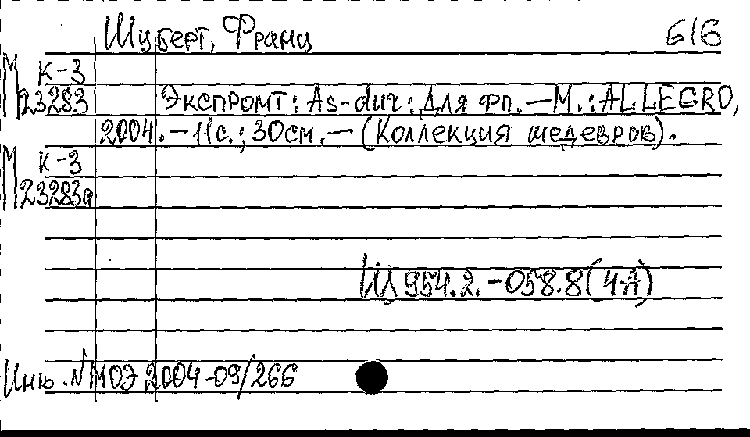 Шуберт, Франц 616
М К-3
23283 Экспромт: As-dur: Для фп. — М.: ALLEGRO,
2004. — 11с.; 30см. — (Коллекция шедевров).
М К-3
23283а
Щ 954.2.-058.8(4А)
Инв. N МОЭ 2004-09/266